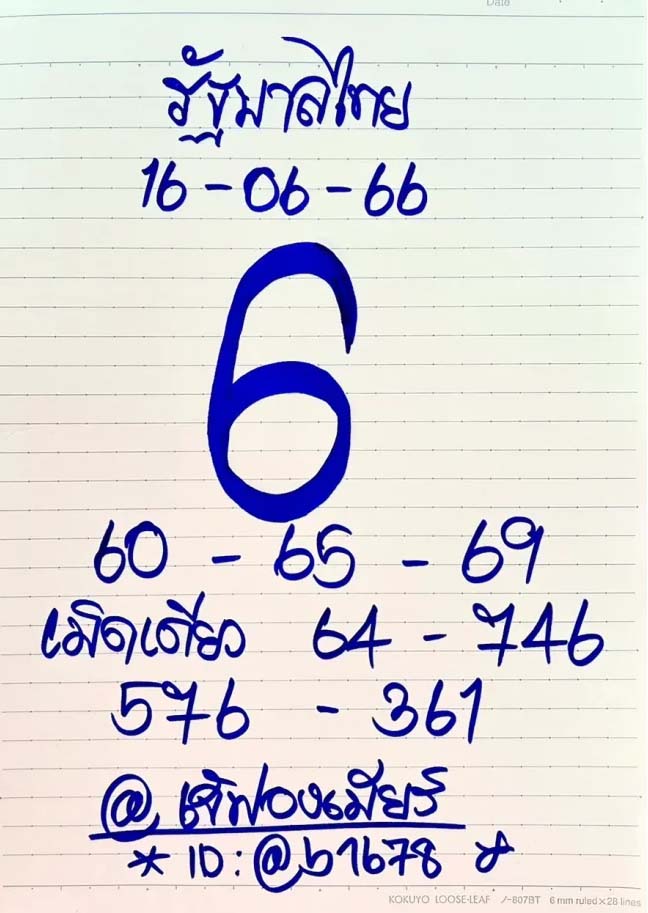 Date
รัฐบาลไทย
16 - 06 - 66
6
60 - 65 - 69
เม็ดเดียว 64 - 746
576 - 361
@ เจ๊ฟองเบียร์
* ID: @b1678 *
KOKUYO LOOSE-LEAF ノ-807BT 6 mm ruled×28 lines